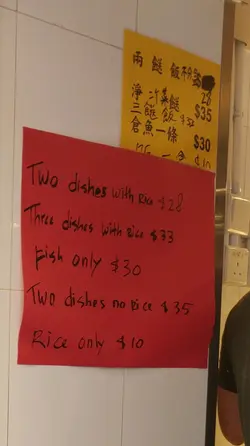 兩餸飯
28
淨 餸 $35
三餸飯 $32
倉魚一條 $30
$10
Two dishes with Rice $28
Three dishes with Rice $33
Fish only $30
Two dishes no Rice $35
Rice only $10